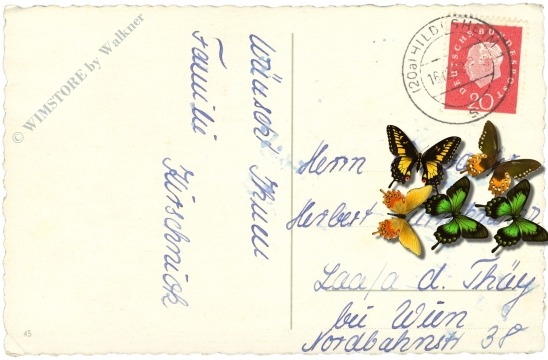 © WIMSTORE by Walkner
wünscht Ihnen
Familie
(20a) HILDESHEIM
DEUTSCHE BUNDESPOST
20
Herrn
Herbert
Laa/a d. Thay
bei Wien
Nordbahnstr 38
45